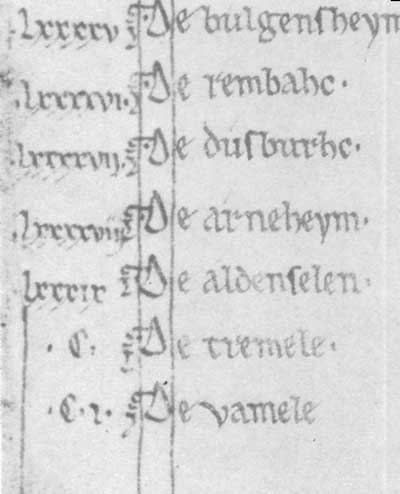 .lxxxxv De bulgensheym
.lxxxxvi. De rembahc.
.lxxxxvij. De dusburhc.
.lxxxxviij De arneheym.
lxxxix De aldenselen.
.C. De tremele.
.C.i. De vamele